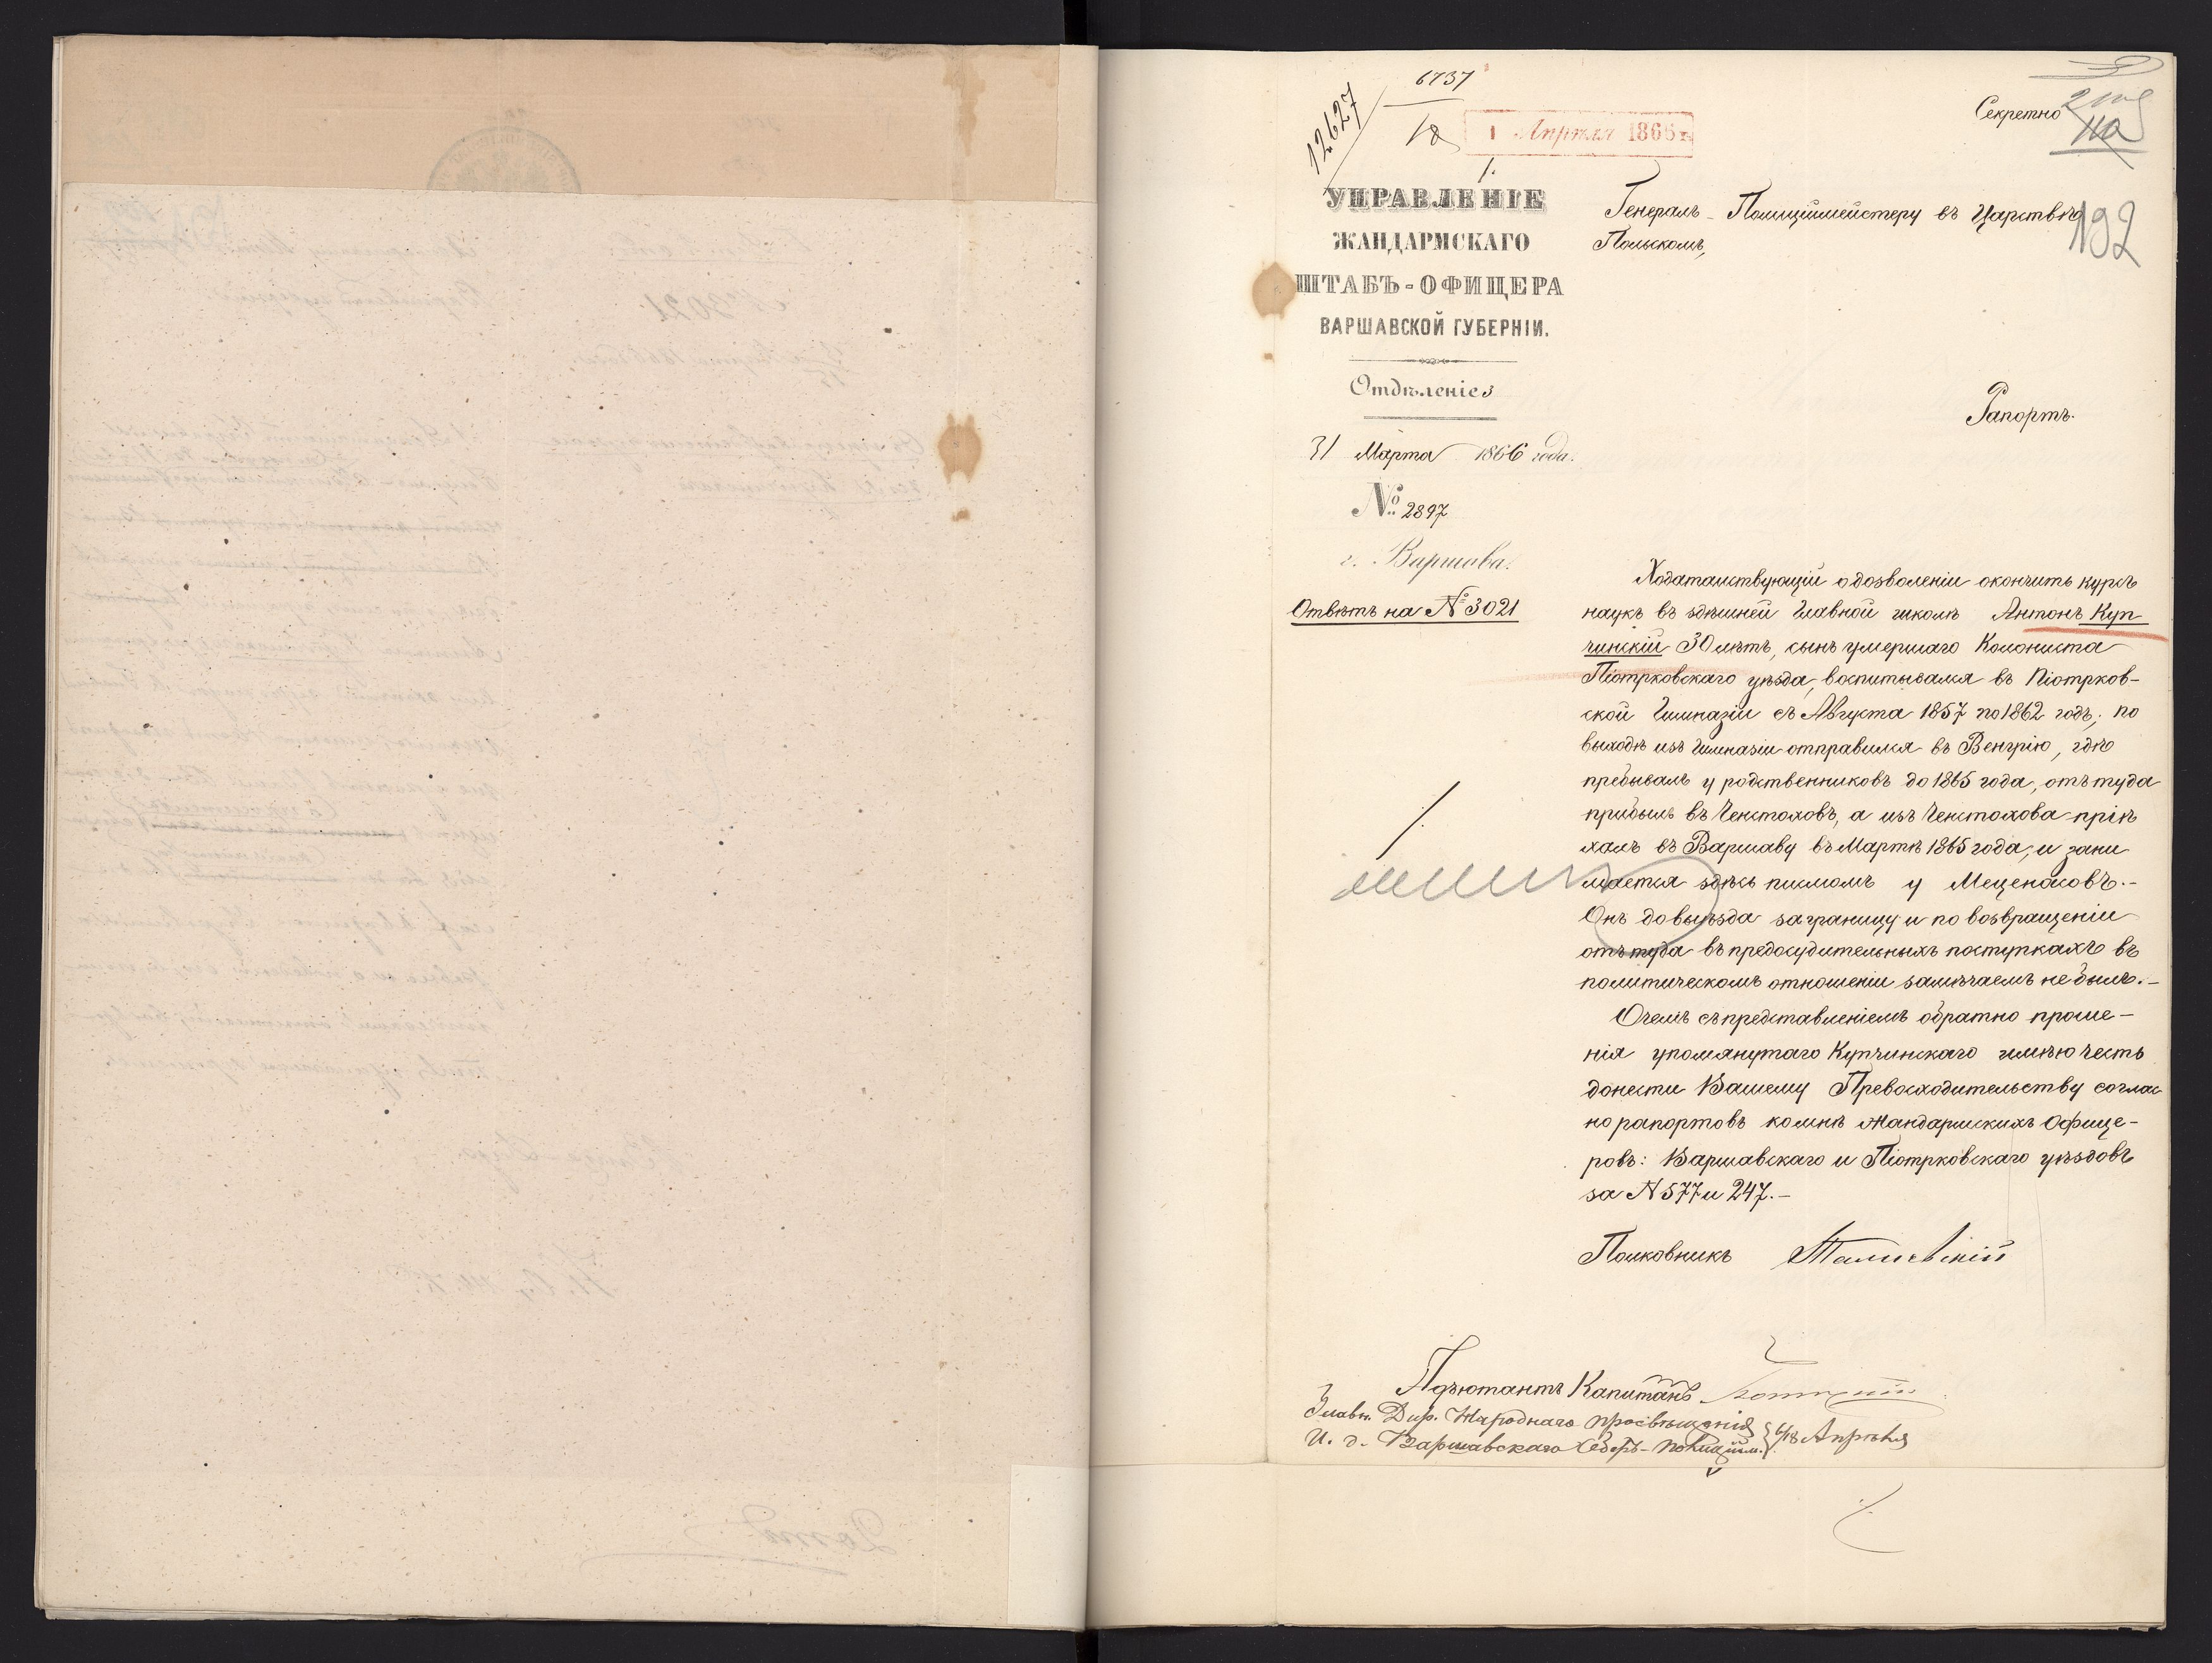 6737
12627
18
1 Апрѣля 1866 г.
Секретно
192
УПРАВЛЕНІЕ
ЖАНДАРМСКАГО
ШТАБЪ-ОФИЦЕРА
ВАРШАВСКОЙ ГУБЕРНІИ.
Отдѣленіе 3
31 Марта 1866 года.
№ 2897
г. Варшава.
Отвѣтъ на № 3021
Генералъ-Полицiймейстеру въ Царствѣ
Польскомъ,
Рапортъ.
Ходатайствующій о дозволеніи окончить курсъ
наукъ въ здѣшней Главной школѣ Антонъ Куп-
чинскій 30 лѣтъ, сынъ умершаго Колониста
Піотрковскаго уѣзда, воспитывался въ Піотрков-
ской Гимназіи съ Августа 1857 по 1862 годъ; по
выходѣ изъ Гимназіи отправился въ Венгрію, гдѣ
пребывалъ у родственниковъ до 1865 года, отъ туда
прибылъ въ Ченстоховъ, а изъ Ченстохова пріѣ
халъ въ Варшаву въ Мартѣ 1865 года, и зани
мается здѣсь писмомъ у Меценасовъ.-
Онъ до выѣзда заграницу и по возвращеніи
отъ туда въ предосудительныхъ поступкахъ въ
политическомъ отношеніи замѣчаемъ не былъ.-
О чемъ съ представленіемъ обратно проше-
нія упомянутаго Купчинскаго имѣю честь
донести Вашему Превосходительству соглас
но рапортовъ ко мнѣ Жандармскихъ Офице-
ровъ: Варшавскаго и Піотрковскаго уѣздовъ
за N 577 и 247.-
Полковникъ
Адъютантъ Капитанъ
Главн. Дир. Народнаго просвѣщенія
И. д. Варшавскаго Оберъ-Полицiйм. } 6/18 Апрѣля